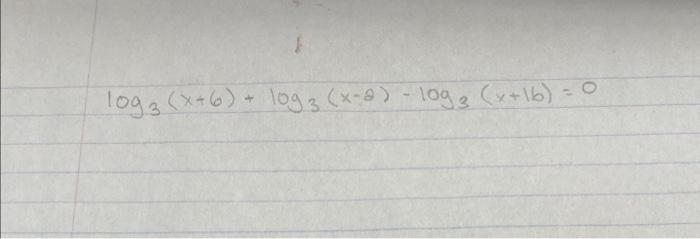 log₃(x+6) + log₃(x-2) - log₃(x+16) = 0